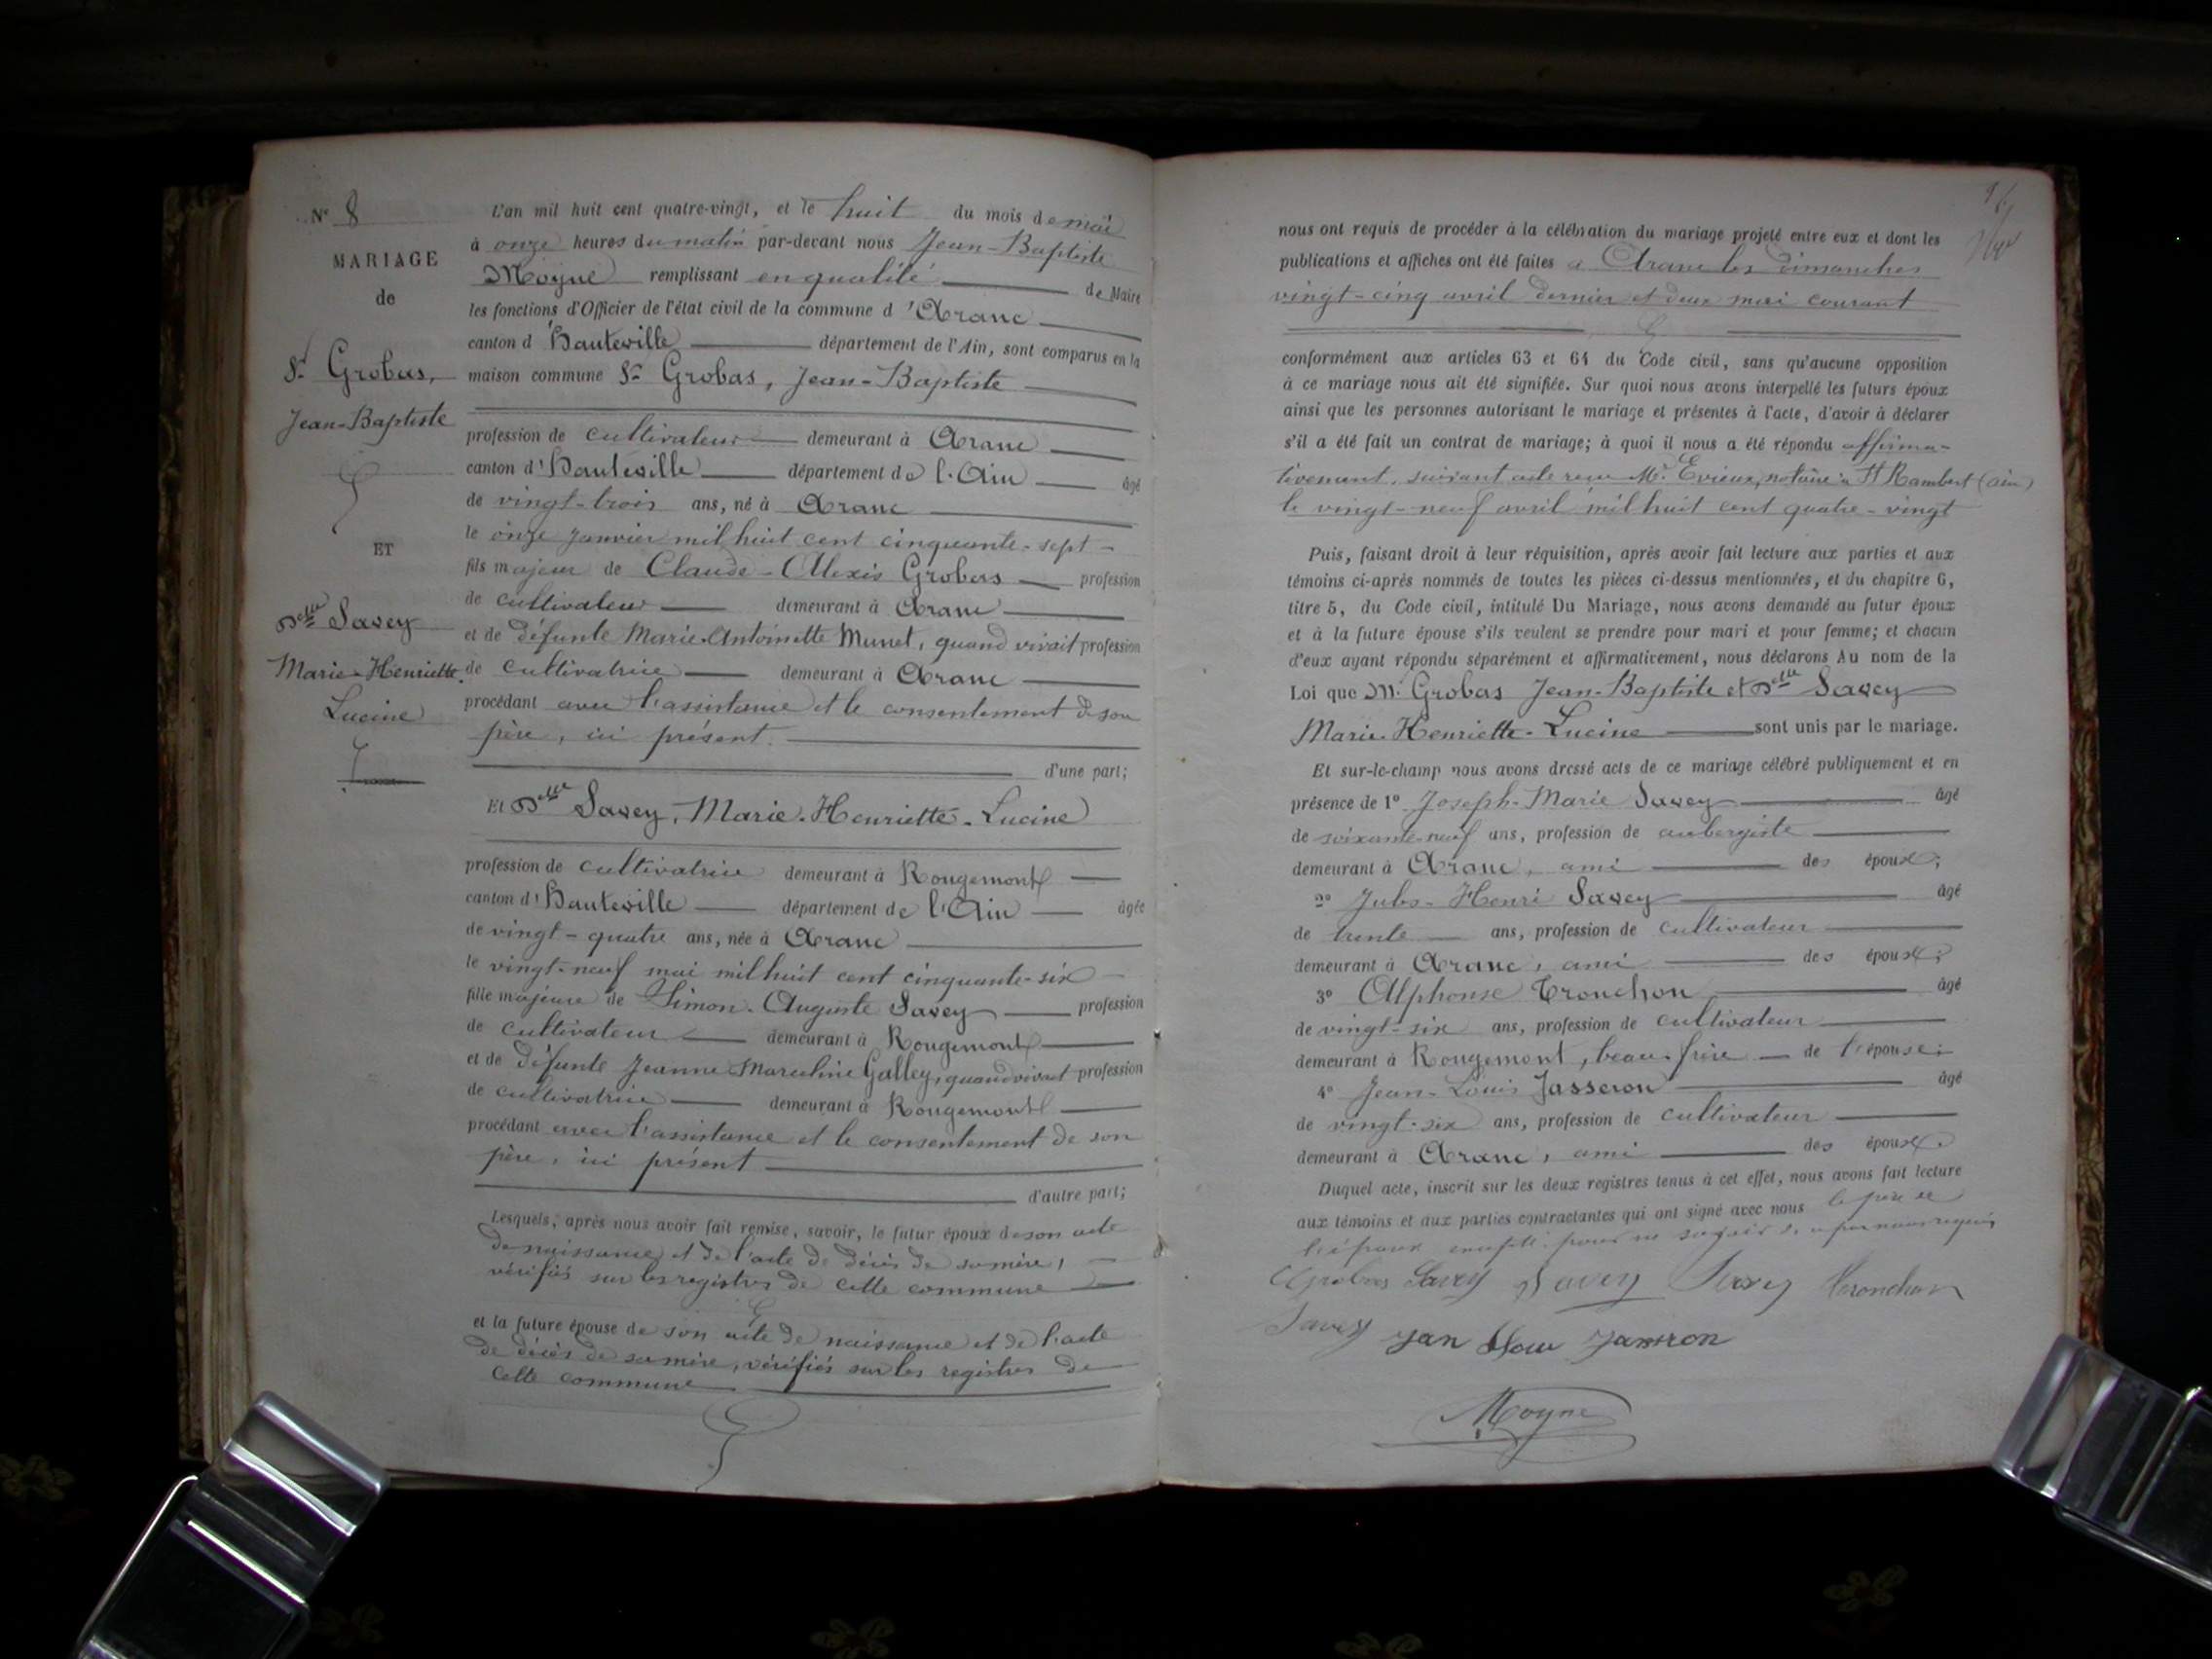 N° 8
MARIAGE
de
Sr Grobas,
Jean-Baptiste
ET
Delle Savey
Marie-Henriette
Lucine
L'an mil huit cent quatre-vingt, et le huit du mois de mai
à onze heures du matin par-devant nous Jean-Baptiste
Moyne remplissant en qualité de Maire
les fonctions d'Officier de l'état civil de la commune d'Aranc
canton d'Hauteville département de l'Ain, sont comparus en la
maison commune Sr Grobas, Jean-Baptiste
profession de cultivateur demeurant à Aranc
canton d'Hauteville département de l'Ain âgé
de vingt-trois ans, né à Aranc
le onze janvier mil huit cent cinquante-sept
fils majeur de Claude-Alexis Grobas profession
de cultivateur demeurant à Aranc
et de défunte Marie-Antoinette Munet, quand vivait profession
de cultivatrice demeurant à Aranc
procédant avec l'assistance et le consentement de son
père, ici présent.
d'une part;
Et Delle Savey, Marie-Henriette-Lucine
profession de cultivatrice demeurant à Rougemont
canton d'Hauteville département de l'Ain âgée
de vingt-quatre ans, née à Aranc
le vingt-neuf mai mil huit cent cinquante-six
fille majeure de Simon-Auguste Savey profession
de cultivateur demeurant à Rougemont
et de défunte Jeanne Marceline Galley, quand vivait profession
de cultivatrice demeurant à Rougemont
procédant avec l'assistance et le consentement de son
père, ici présent
d'autre part;
Lesquels, après nous avoir fait remise, savoir, le futur époux de son acte
de naissance et de l'acte de décès de sa mère,
vérifiés sur les registres de cette commune
et la future épouse de son acte de naissance et de l'acte
de décès de sa mère, vérifiés sur les registres de
cette commune
nous ont requis de procéder à la célébration du mariage projeté entre eux et dont les
publications et affiches ont été faites à Aranc les dimanches
vingt-cinq avril dernier et deux mai courant
conformément aux articles 63 et 64 du Code civil, sans qu'aucune opposition
à ce mariage nous ait été signifiée. Sur quoi nous avons interpellé les futurs époux
ainsi que les personnes autorisant le mariage et présentes à l'acte, d'avoir à déclarer
s'il a été fait un contrat de mariage; à quoi il nous a été répondu affirma-
tivement, suivant acte reçu Me Evieux, notaire à St Rambert (Ain)
le vingt-neuf avril mil huit cent quatre-vingt
Puis, faisant droit à leur réquisition, après avoir fait lecture aux parties et aux
témoins ci-après nommés de toutes les pièces ci-dessus mentionnées, et du chapitre 6,
titre 5, du Code civil, intitulé Du Mariage, nous avons demandé au futur époux
et à la future épouse s'ils veulent se prendre pour mari et pour femme; et chacun
d'eux ayant répondu séparément et affirmativement, nous déclarons Au nom de la
Loi que Mr Grobas Jean-Baptiste et Delle Savey
Marie-Henriette-Lucine sont unis par le mariage.
Et sur-le-champ nous avons dressé acts de ce mariage célébré publiquement et en
présence de 1° Joseph-Marie Savey âgé
de soixante-neuf ans, profession de aubergiste
demeurant à Aranc, ami des époux;
2° Jules-Henri Savey âgé
de trente ans, profession de cultivateur
demeurant à Aranc, ami des époux;
3° Alphonse Tronchon âgé
de vingt-six ans, profession de cultivateur
demeurant à Rougemont, beau-frère de l'épouse;
4° Jean-Louis Jasseron âgé
de vingt-six ans, profession de cultivateur
demeurant à Aranc, ami des époux.
Duquel acte, inscrit sur les deux registres tenus à cet effet, nous avons fait lecture
aux témoins et aux parties contractantes qui ont signé avec nous le père de
l'époux excepté pour ne savoir de ce par nous requis
Grobas Savey Savey Savey Tronchon
Savey Jan Jasseron
Moyne